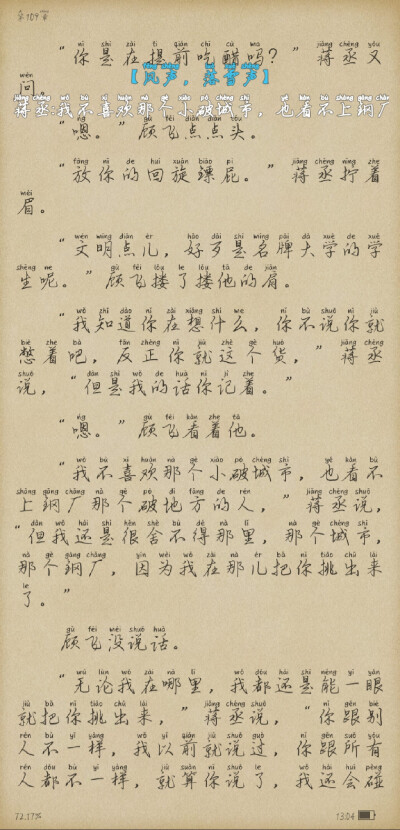 第109章
“你是在提前吃醋吗？”蒋丞又
【风声，落音声】
问。
蒋丞:我不喜欢那个小破城市，也看不上钢厂
“嗯。”顾飞点点头。
“放你的回旋镖屁。”蒋丞拧着
眉。
“文明点儿，好歹是名牌大学的学
生呢。”顾飞搂了搂他的肩。
“我知道你在想什么，你不说你就
憋着吧，反正你就这个货，”蒋丞
说，“但是我的话你记着。”
“嗯。”顾飞看着他。
“我不喜欢那个小破城市，也看不
上钢厂那个破地方的人，”蒋丞说，
“但我还是很舍不得那里，那个城市，
那个钢厂，因为我在那儿把你挑出来
了。”
顾飞没说话。
“无论我在哪里，我都还是能一眼
就把你挑出来，”蒋丞说，“你跟别
人不一样，我以前就说过，你跟所有
人都不一样，就算你说了，我还会碰
72.17%
13:04